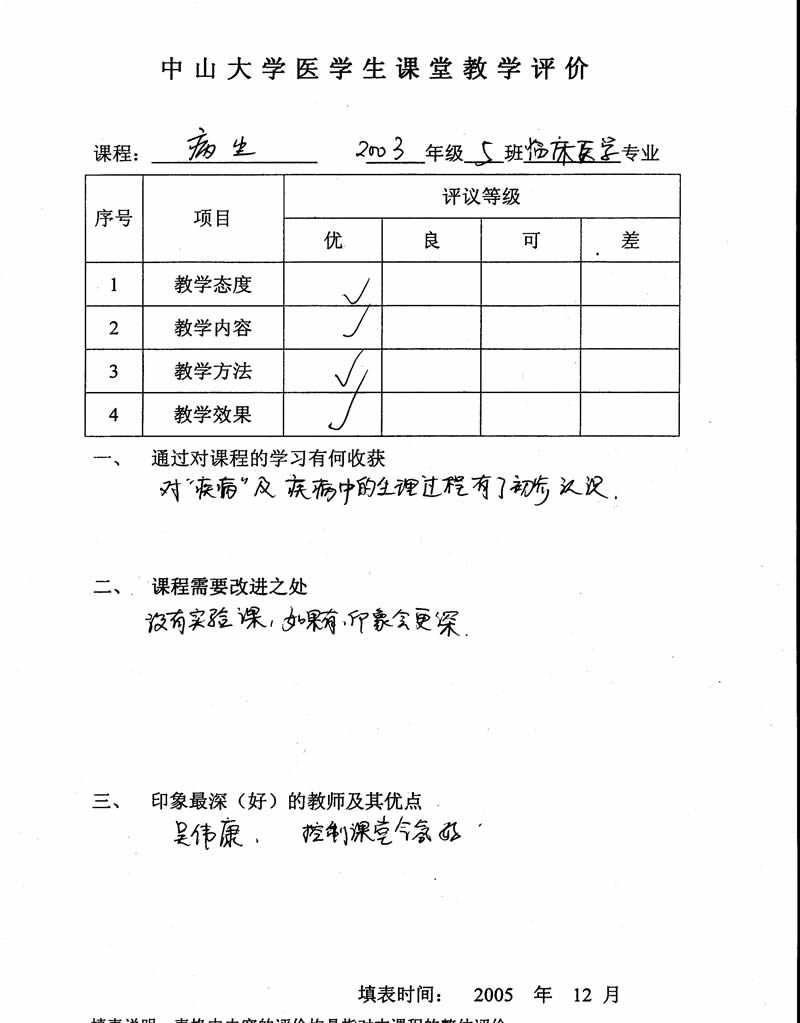 中山大学医学生课堂教学评价
课程： 病生 2003 年级 5 班 临床医学 专业
序号 项目 评议等级
优 良 可 差
1 教学态度 ✓
2 教学内容 ✓
3 教学方法 ✓
4 教学效果 ✓
一、 通过对课程的学习有何收获
对“疾病”及疾病中的生理过程有了初步认识.
二、 课程需要改进之处
没有实验课，如果有，印象会更深.
三、 印象最深（好）的教师及其优点
吴伟康， 控制课堂气氛好
填表时间： 2005 年 12 月
填表说明：表格中内容的评价均是指对本课程的整体评价